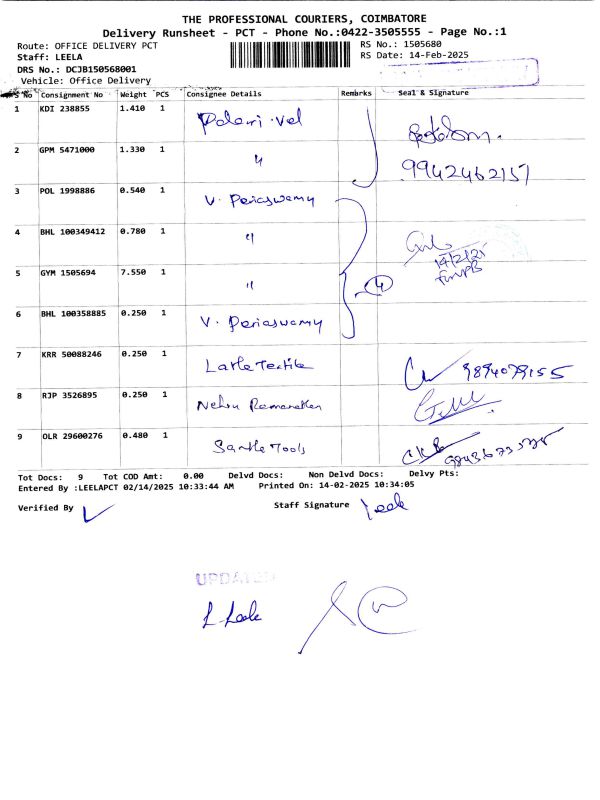 THE PROFESSIONAL COURIERS, COIMBATORE
Delivery Runsheet - PCT - Phone No.:0422-3505555 - Page No.:1
Route: OFFICE DELIVERY PCT RS No.: 1505680
Staff: LEELA RS Date: 14-Feb-2025
DRS No.: DCJB150568001
Vehicle: Office Delivery
S No Consignment No Weight PCS Consignee Details Remarks Seal & Signature
1 KDI 238855 1.410 1
2 GPM 5471000 1.330 1 〃 9942462157
3 POL 1998886 0.540 1 V. Periaswamy
4 BHL 100349412 0.780 1 〃 14/2/25
5 GYM 1505694 7.550 1 〃 4
6 BHL 100358885 0.250 1 V. Periaswamy
7 KRR 50088246 0.250 1 9894079155
8 RJP 3526895 0.250 1 Nehru
9 OLR 29600276 0.480 1 Tools
Tot Docs: 9 Tot COD Amt: 0.00 Delvd Docs: Non Delvd Docs: Delvy Pts:
Entered By :LEELAPCT 02/14/2025 10:33:44 AM Printed On: 14-02-2025 10:34:05
Verified By Staff Signature Leela
UPDATED
L. Leela